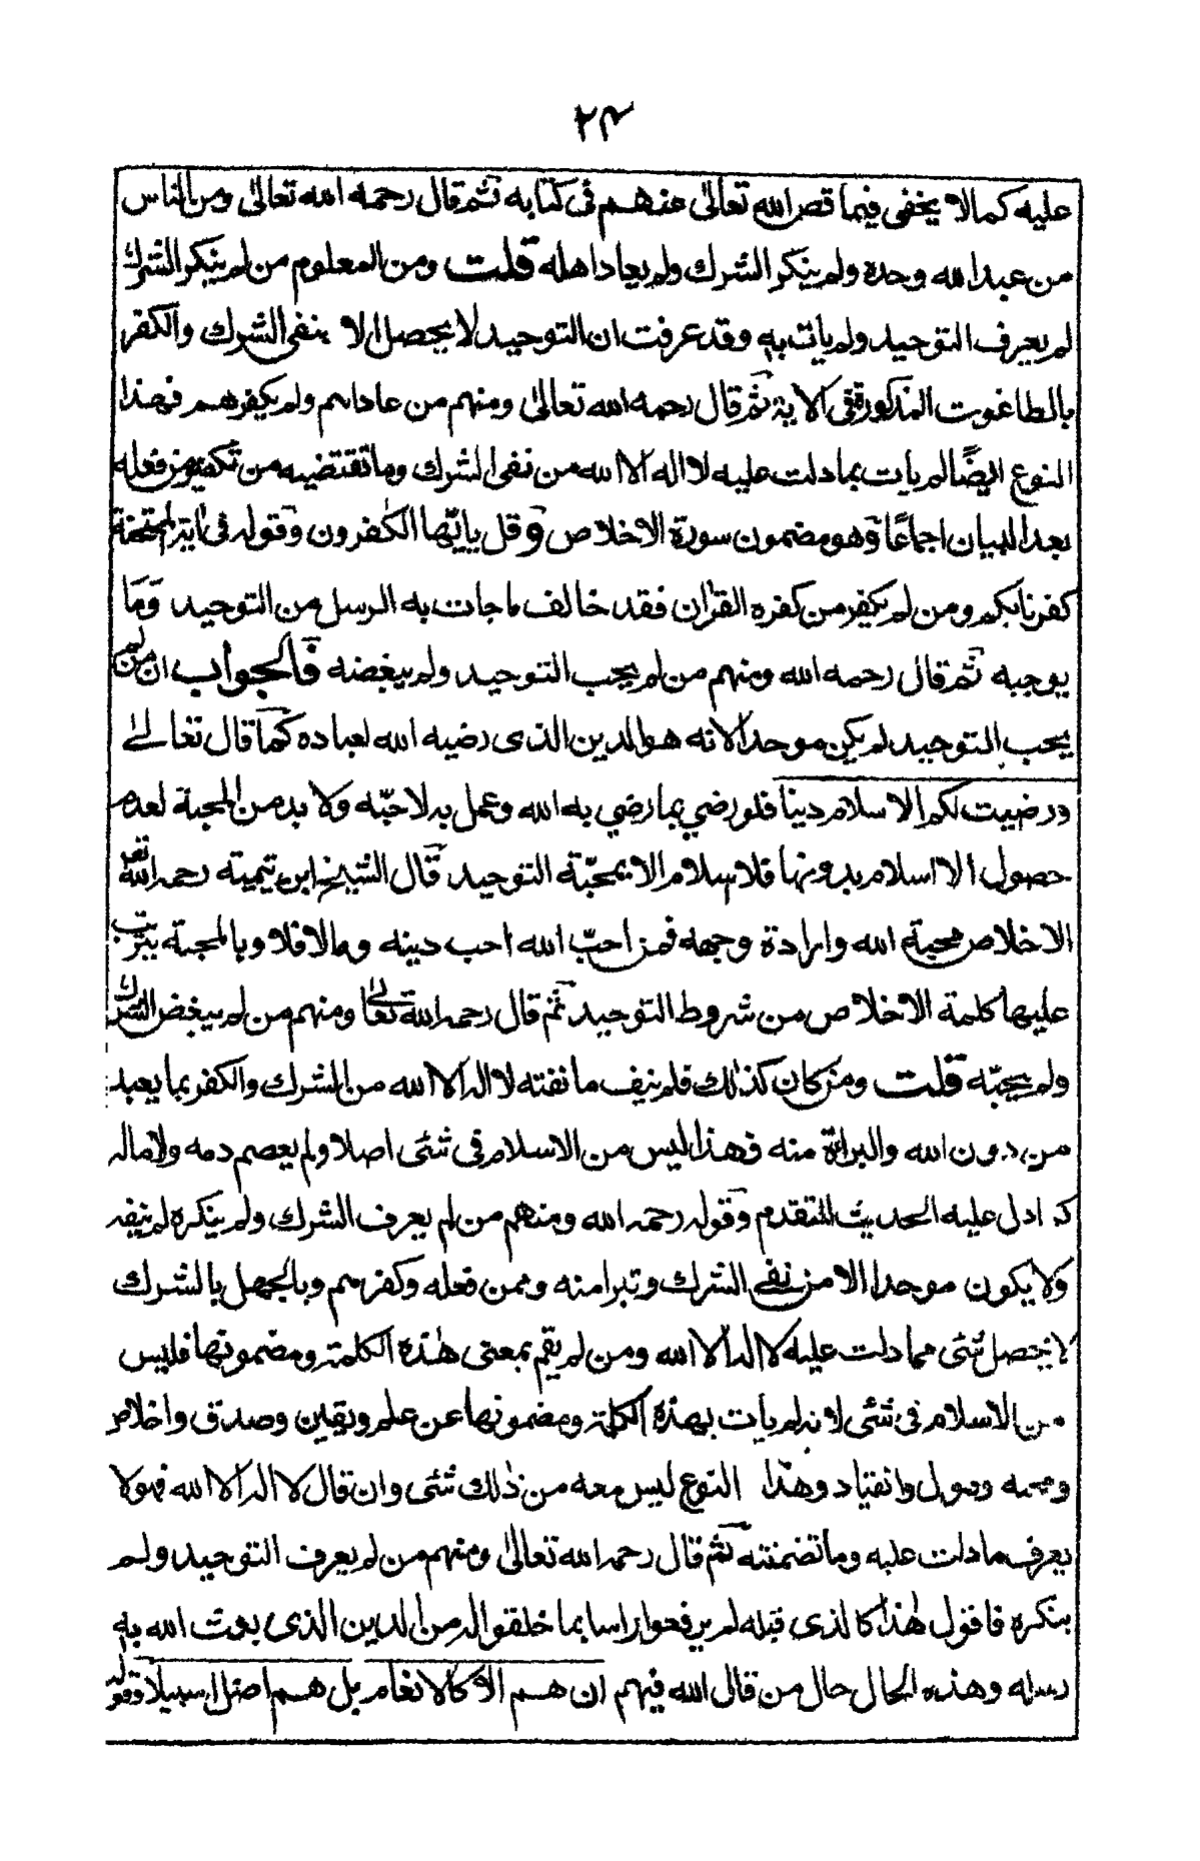 ٢٤
عليه كما لا يخفى فيما قص الله تعالىٰ عنهم فى كتابه ثم قال رحمه الله تعالىٰ ومن الناس
من عبد الله وحده ولم ينكر الشرك ولم يعاد اهله قلت ومن المعلوم من لم ينكر الشرك
لم يعرف التوحيد ولم يات به وقد عرفت ان التوحيد لا يحصل الا بنفى الشرك والكفر
بالطاغوت المذكور فى الاية ثم قال رحمه الله تعالىٰ ومنهم من عاداهم ولم يكفرهم فهذا
النوع ايضًا لم يات بما دلت عليه لا اله الا الله من نفى الشرك وما تقتضيه من تكفير من فعله
بعد البيان اجماعًا وهو مضمون سورة الاخلاص وقل ياايّها الكٰفرون وقوله فى اٰية الممتحنة
كفرنا بكم ومن لم يكفر من كفره القراٰن فقد خالف ما جات به الرسل من التوحيد وَمَا
يوجبه ثم قال رحمه الله ومنهم من لم يحب التوحيد ولم يبغضه فالجواب ان من لم
يحب التوحيد لم يكن موحدا لانه هو الدين الذى رضيه الله لعباده كما قال تعالىٰ
ورضيت لكم الاسلام دينا فلو رضي بما رضي به الله وعمل به لاحبّه ولا بد من المحبة لعدم
حصول الاسلام بدونها فلا اسلام الا بمحبّة التوحيد قال الشيخ ابن تيمية رحمه الله تعم
الاخلاص محبة الله وارادة وجهه فمن احبّ الله احب دينه وما لا فلا وبالمحبة يترتب
عليها كلمة الاخلاص من شروط التوحيد ثم قال رحمه الله تعالىٰ ومنهم من لم يبغض الشرك
ولم يحبّه قلت ومن كان كذٰلك فلم ينف ما نفته لا اله الا الله من الشرك والكفر بما يعبد
من دون الله والبراة منه فهذا ليس من الاسلام فى شئى اصلا ولم يعصم دمه ولا ماله
كما دل عليه الحديث المتقدم وقوله رحمه الله ومنهم من لم يعرف الشرك ولم ينكره لم ينفه
ولا يكون موحدا الا من نفى الشرك وتبرا منه وممن فعله وكفرهم وبالجهل بالشرك
لا يحصل شئى مما دلت عليه لا اله الا الله ومن لم يقم بمعنى هٰذه الكلمة ومضمونها فليس
من الاسلام فى شئى لانه لم يات بهذه الكلمة ومضمونها عن علم ويقين وصدق واخلاص
ومحبه وقبول وانقياد وهٰذا النوع ليس معه من ذٰلك شئى وان قال لا اله الا الله فهو لا
يعرف ما دلت عليه وما تضمنته ثم قال رحمه الله تعالىٰ ومنهم من لم يعرف التوحيد ولم
ينكره فاقول هٰذا كالذى قبله لم يرفعوا راسا بما خلقوا له من الدين الذى بعث الله به
رسله وهذه الحال حال من قال الله فيهم ان هم الا كالانعام بل هم اضل سبيلا وقوله